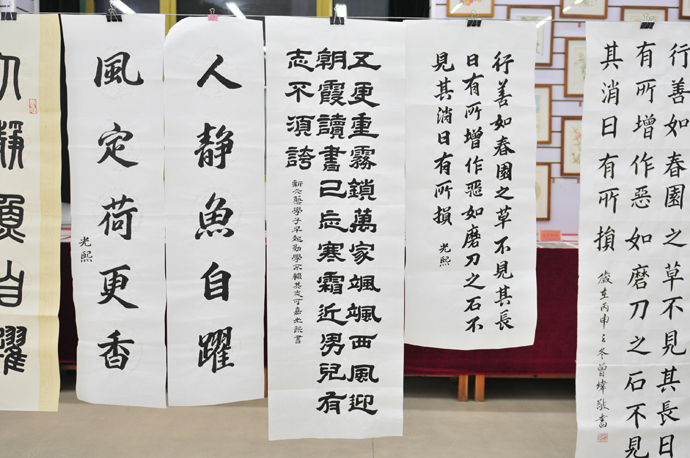 行善如春園之草不見其長日
有所增作惡如磨刀之石不見
其消日有所損
歲在丙申之冬曾緯敬書
行善如春園之草不見其長
日有所增作惡如磨刀之石不
見其消日有所損
光熙
五更重霧鎖萬家颯颯西風迎
朝霞讀書已忘寒霜近男兒有
志不須誇
藝學子早起勤學 其志可嘉光熙書
人静魚自躍
風定荷更香
光熙
人靜魚自躍